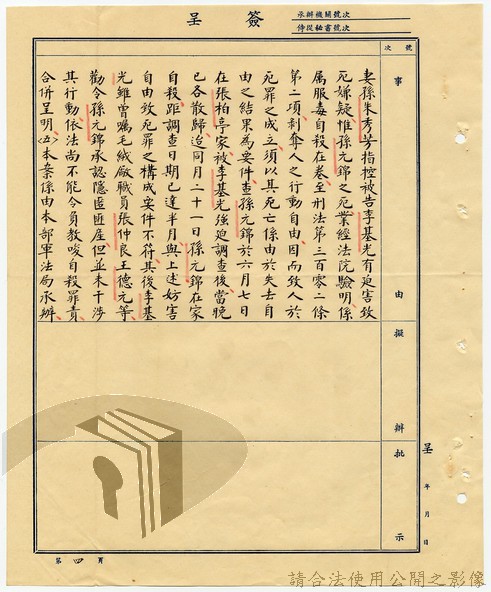 簽呈
承辦機關號次
侍從秘書號次
號次
事由
擬辦
批示
呈 年 月 日
妻孫朱秀芳指控被告李基光有迫害致
死嫌疑惟孫元錦之死業經法院驗明係
属服毒自殺在卷至刑法第三百零二條
第二項剥奪人之行動自由因而致人於
死罪之成立須以其死亡係由於失去自
由之結果為要件查孫元錦於六月七日
在張柏亭家被李基光強廹調查後當晚
已各散歸迨同月二十一日孫元錦在家
自殺距調查日期已達半月與上述妨害
自由致死罪之構成要件不符其後李基
光雖曾囑毛絨廠職員張仲良王德元等
勸令孫元錦承認隱匿匪產但並未干涉
其行動依法尚不能令負教唆自殺罪責
合併呈明㈤本案係由本部軍法局承辦
第四頁
請合法使用公開之影像